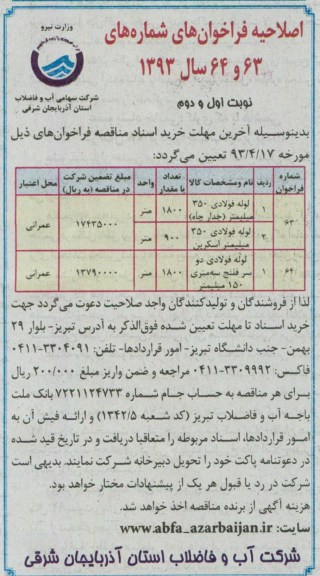 وزارت نیرو
شرکت سهامی آب و فاضلاب
استان آذربایجان شرقی
اصلاحیه فراخوان‌های شماره‌های
۶۳ و ۶۴ سال ۱۳۹۳
نوبت اول و دوم
بدینوسیله آخرین مهلت خرید اسناد مناقصه فراخوان‌های ذیل
مورخه ۹۳/۴/۱۷ تعیین می‌گردد:
شماره فراخوان | ردیف | نام ومشخصات کالا | تعداد یا مقدار | واحد | مبلغ تضمین شرکت در مناقصه (به ریال) | محل اعتبار
۶۳ | ۱ | لوله فولادی ۳۵۰ میلیمتر (جدار چاه) | ۱۸۰۰ | متر | ۱۷۴۳۵۰۰۰ | عمرانی
۲ | لوله فولادی ۳۵۰ میلیمتر اسکرین | ۹۰۰ | متر
۶۴ | ۱ | لوله فولادی دو سر فلنج سه‌متری ۱۵۰ میلیمتر | ۱۸۰۰ | متر | ۱۳۷۹۰۰۰۰ | عمرانی
لذا از فروشندگان و تولیدکنندگان واجد صلاحیت دعوت می‌گردد جهت
خرید اسناد تا مهلت تعیین شده فوق‌الذکر به آدرس تبریز- بلوار ۲۹
بهمن- جنب دانشگاه تبریز- امور قراردادها- تلفن: ۳۳۰۴۰۹۱-۰۴۱۱
فاکس: ۳۳۰۹۹۹۲-۰۴۱۱ مراجعه و ضمن واریز مبلغ ۲۰۰/۰۰۰ ریال
برای هر مناقصه به حساب جام شماره ۷۲۲۱۱۲۴۷۳۳ بانک ملت
باجه آب و فاضلاب تبریز (کد شعبه ۱۳۴۲/۵) و ارائه فیش آن به
امور قراردادها، اسناد مربوطه را متعاقبا دریافت و در تاریخ قید شده
در دعوتنامه پاکت خود را تحویل دبیرخانه شرکت نمایند. بدیهی است
شرکت در رد یا قبول هر یک از پیشنهادات مختار خواهد بود.
هزینه آگهی از برنده مناقصه اخذ خواهد شد.
سایت: www.abfa_azarbaijan.ir
شرکت آب و فاضلاب استان آذربایجان شرقی